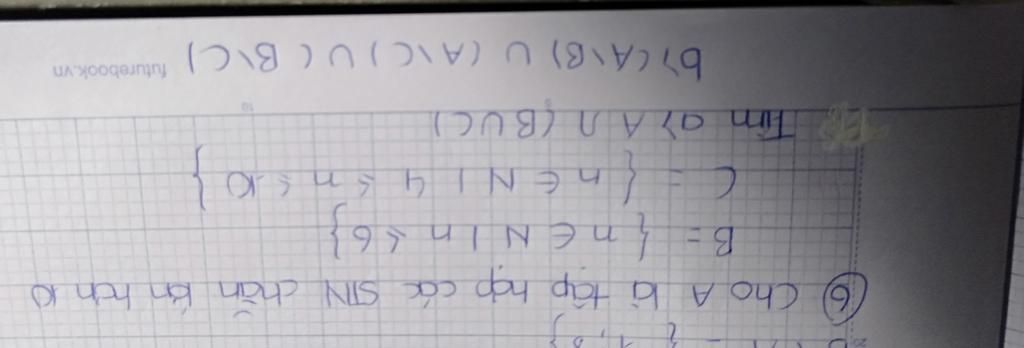 ⑥ Cho A là tập hợp các STN chẵn lớn hơn 10
B = { n ∈ N | n ≤ 6 }
C = { n ∈ N | 4 ≤ n ≤ 10 }
Tìm a) A ∩ (B ∪ C)
b) (A \ B) ∪ (A \ C) ∪ (B \ C)
futurebook.vn